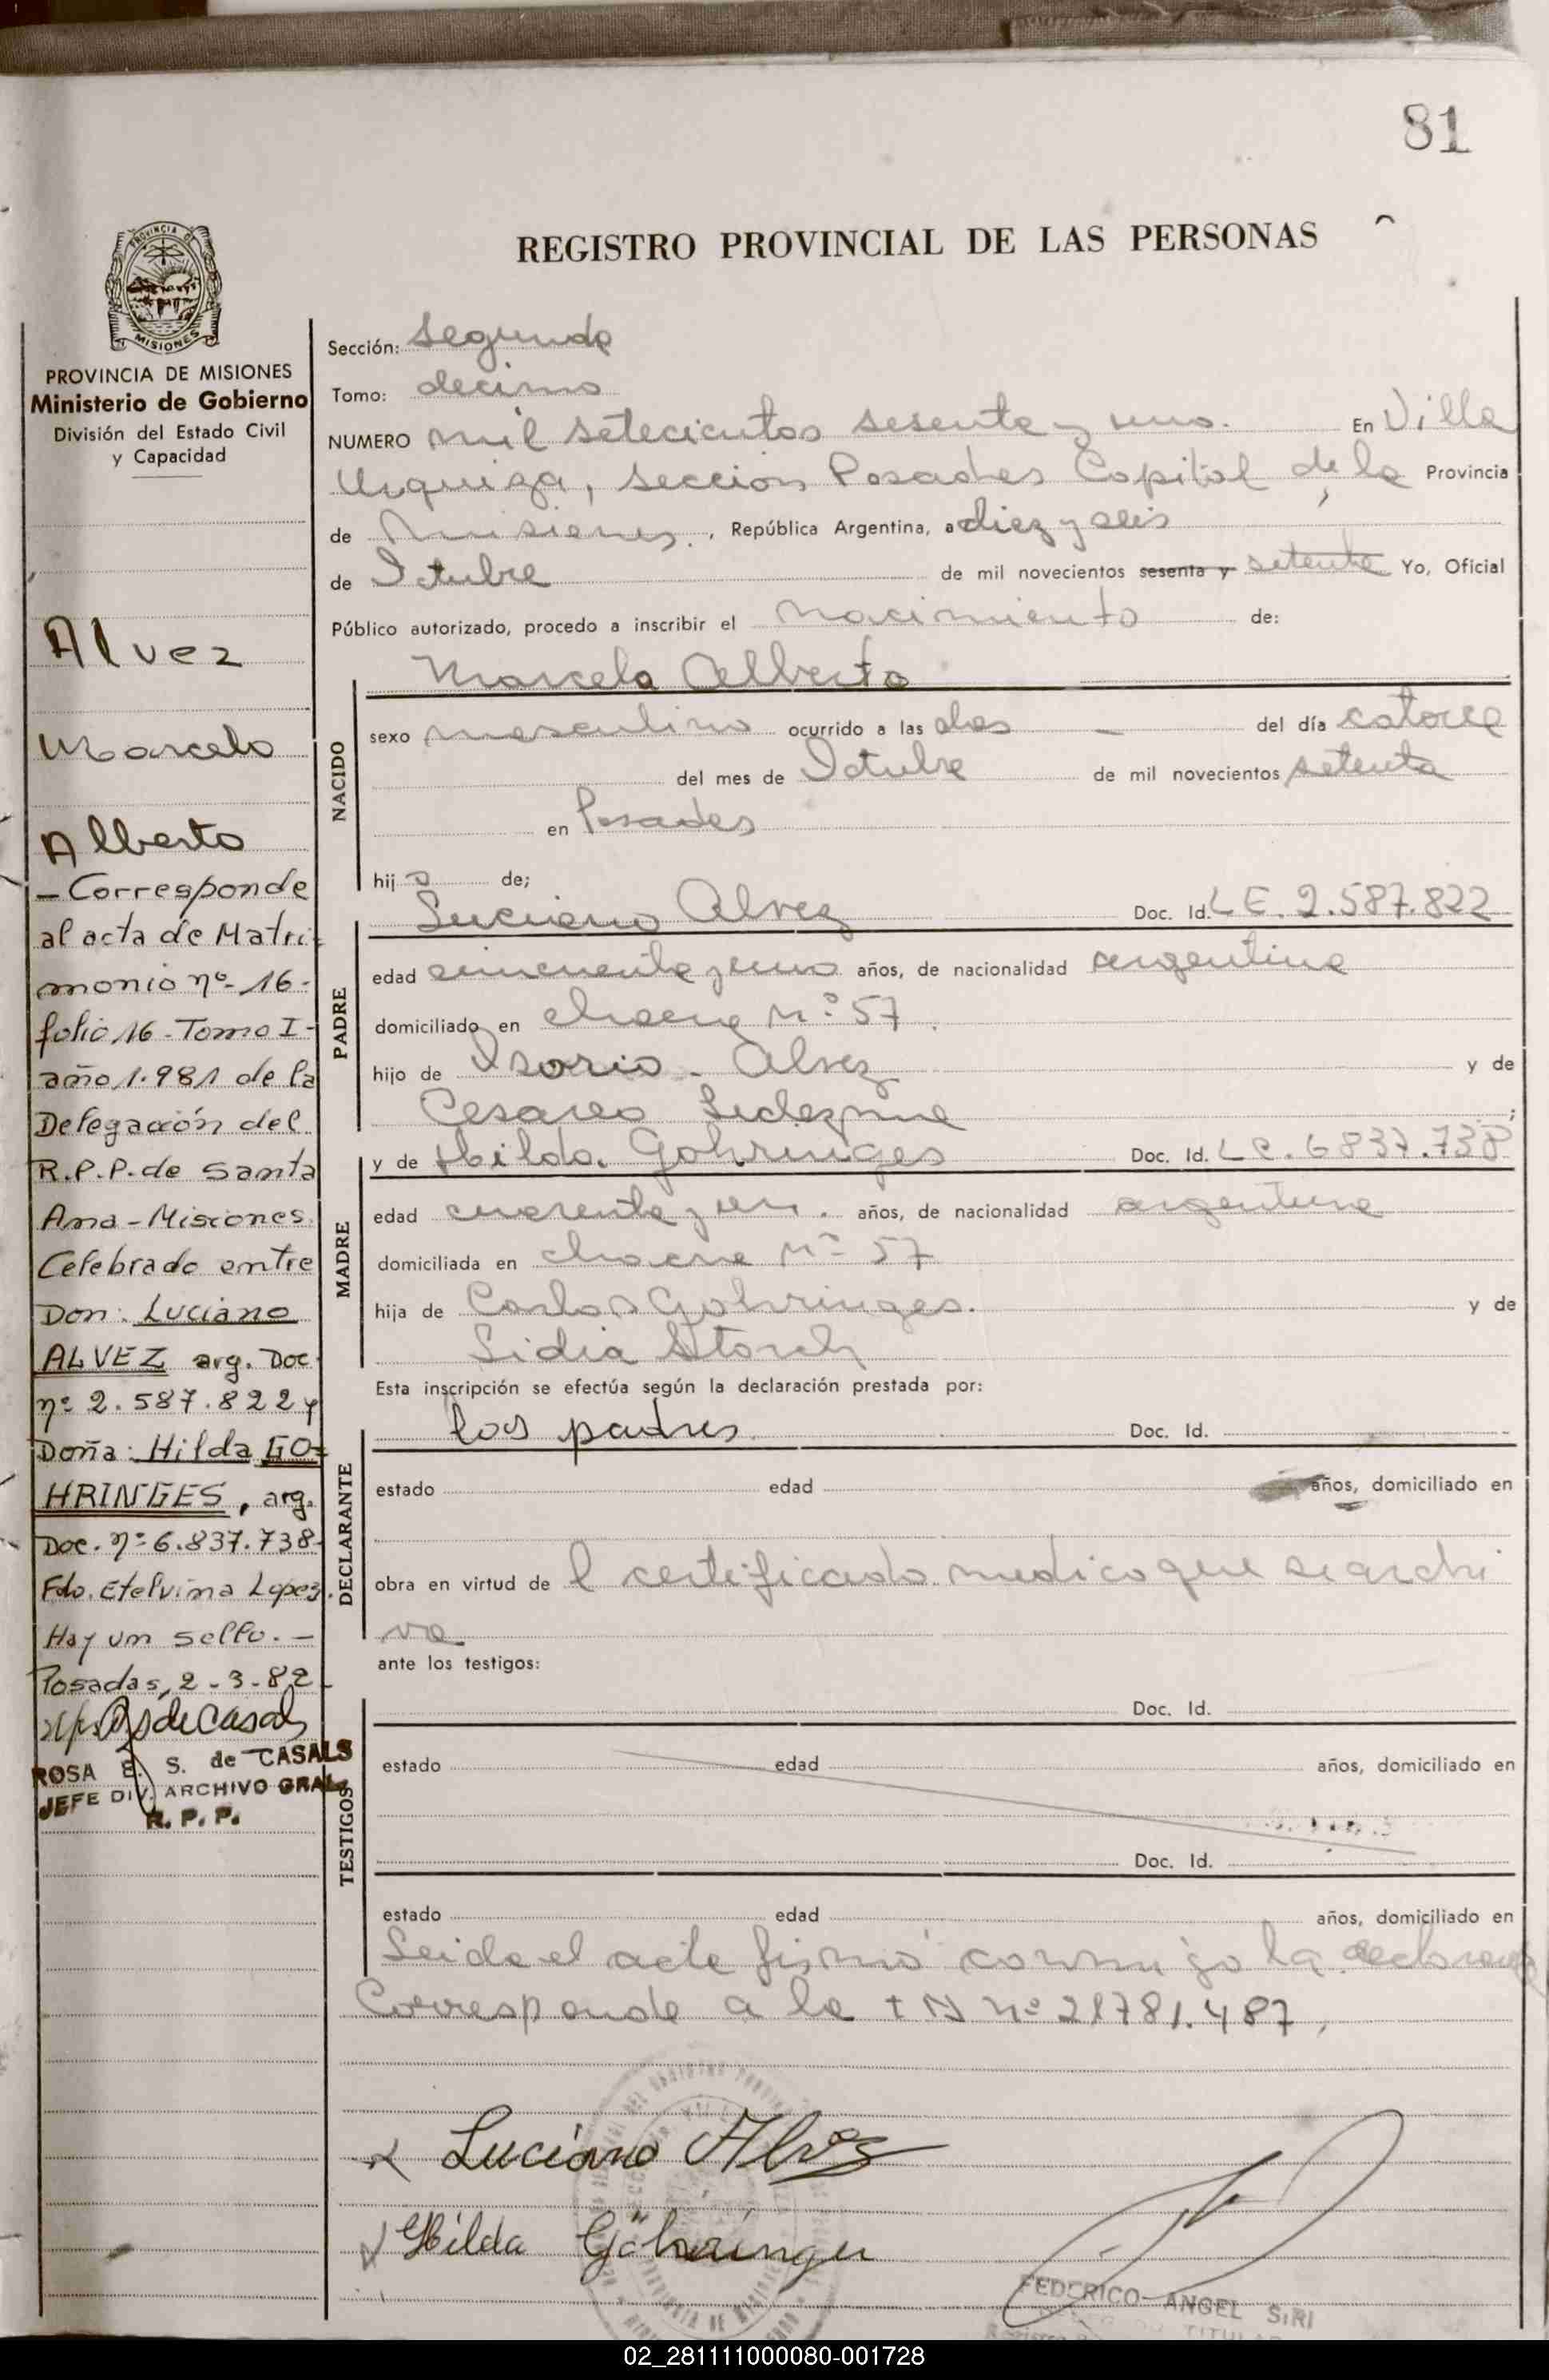 81
REGISTRO PROVINCIAL DE LAS PERSONAS
PROVINCIA DE MISIONES
Ministerio de Gobierno
División del Estado Civil
y Capacidad
Alvez
Marcelo
Alberto
– Corresponde
al acta de Matri-
monio nº 16-
folio 16 - Tomo I-
año 1.981 de la
Delegación del
R.P.P. de Santa
Ana - Misiones.
Celebrado entre
Don: Luciano
ALVEZ arg. Doc
nº 2.587.822 y
Doña: Hilda GO-
HRINGES, arg.
Doc. nº 6.837.738
Fdo. Etelvina Lopez.
Hay un sello. –
Posadas, 2-3-82
ROSA E. S. de CASALS
JEFE DIV. ARCHIVO GRAL.
R. P. P.
Sección: Segunda
Tomo: decimo
NUMERO mil setecientos sesenta y uno. En Villa
Urquiza, sección Posadas Capital de la Provincia
de Misiones., República Argentina, a diez y seis
de Octubre de mil novecientos sesenta y setenta Yo, Oficial
Público autorizado, procedo a inscribir el nacimiento de:
Marcelo Alberto
NACIDO
sexo masculino ocurrido a las dos — del día catorce
del mes de Octubre de mil novecientos setenta
en Posadas
hij o de;
Luciano Alvez Doc. Id. L E. 2.587.822
PADRE
edad cincuenta y uno años, de nacionalidad argentina
domiciliado en chacra Nº 57.
hijo de Osorio - Alvez y de
Cesarea Ledezma ;
y de Hilda. Gohringes Doc. Id. L C. 6837.738
MADRE
edad cuarenta y un. años, de nacionalidad argentina
domiciliada en chacra Nº 57
hija de Carlos Gohringes. y de
Lidia Storch
Esta inscripción se efectúa según la declaración prestada por:
los padres Doc. Id.
DECLARANTE
estado edad años, domiciliado en
obra en virtud de l certificado medico que se archi
va
ante los testigos:
Doc. Id.
TESTIGOS
estado edad años, domiciliado en
Doc. Id.
estado edad años, domiciliado en
Leida el acta firmó conmigo la
Corresponde a la t N nº 21781.487,
Luciano Alvez
Hilda Göhringer
FEDERICO ANGEL SIRI
02_281111000080-001728